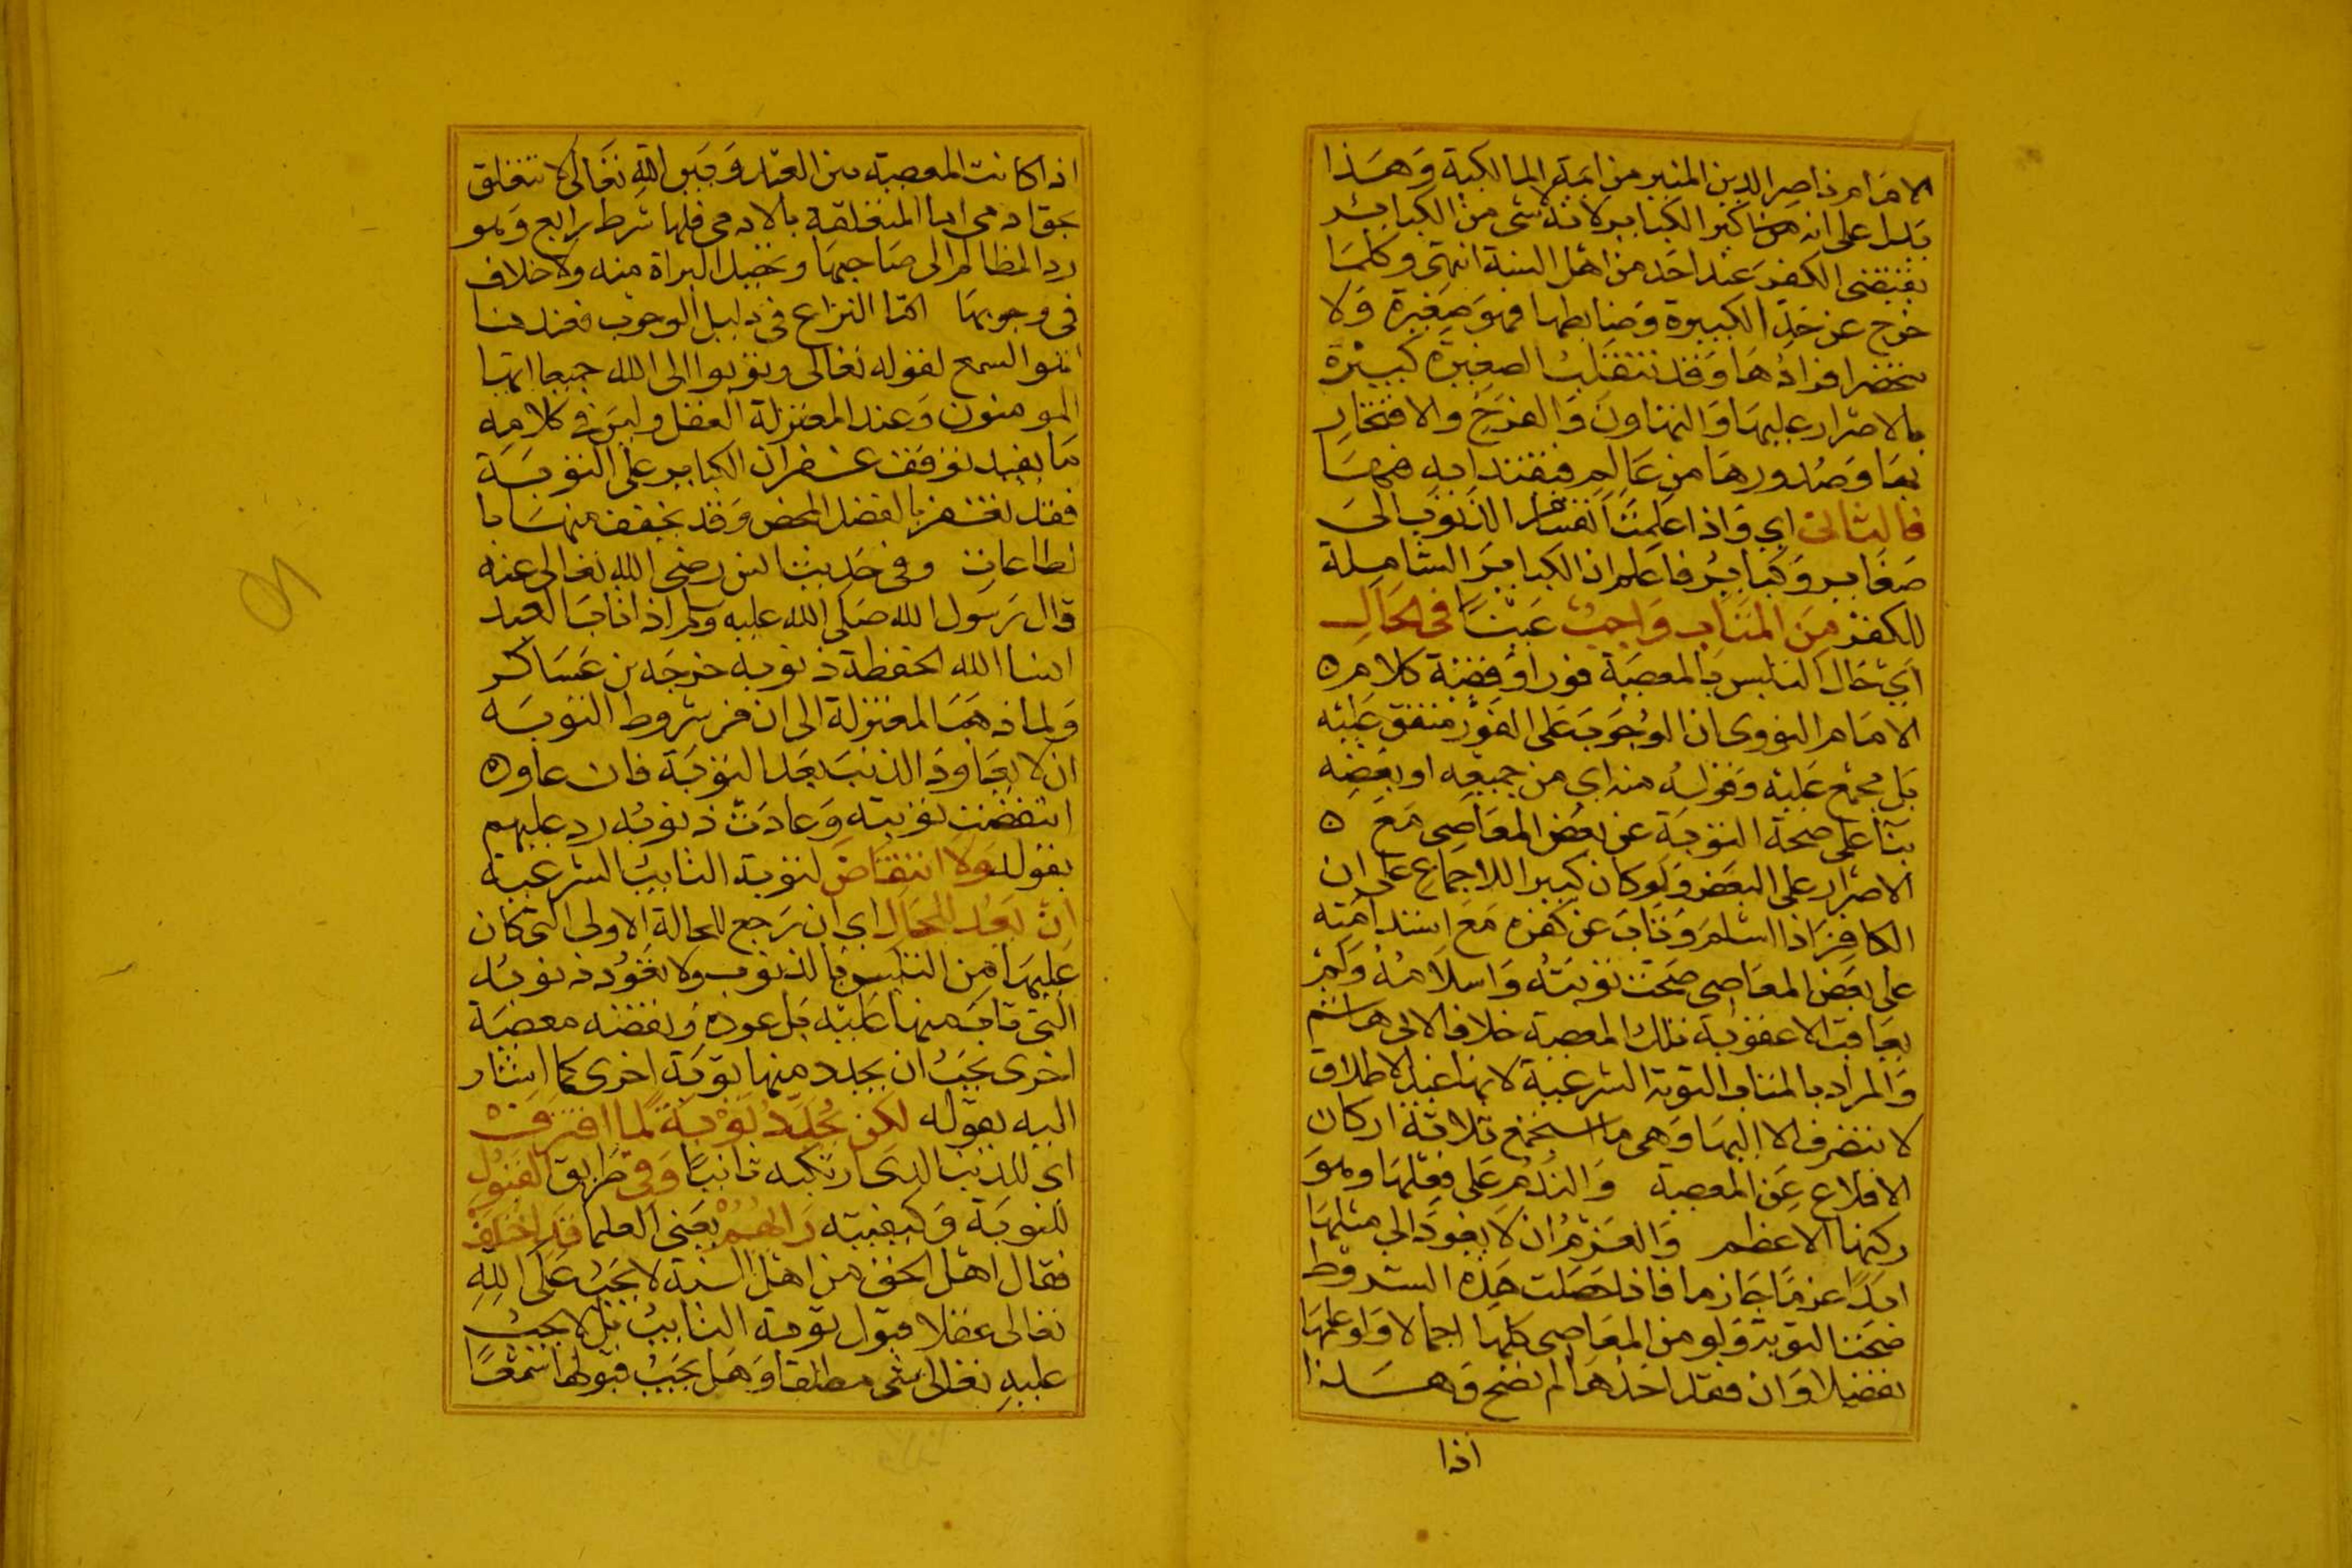 الامام ناصر الدين المنير من ايمة المالكية وهذا
يدل على انه من اكبر الكباير لانه لا شى من الكباير
يقتضى الكفر عند احد من اهل السنة انتهى وكلما
خرج عن حد الكبيرة وضابطها فهو صغيرة ولا
تنحصر افرادها وقد تنقلب الصغيرة كبيرة
بالاصرار عليها والتهاون والفرح والافتخار
بها وصدورها من عالم فيقتدا به فيها
فالثانى اي واذا علمت انقسام الذنوب الى
صغاير وكباير فاعلم ان الكباير الشاملة
للكفر من المتاب واجب عينا فى الحال
اي حال التلبس بالمعصية فورا وقضية كلام
الامام النووى ان الوجوب على الفور متفق عليه
بل مجمع عليه وقوله منه اي من جميعه او بعضه
بنا على صحة التوبة عن بعض المعاصى مع
الاصرار على البعض ولو كان كبيرا للاجماع على ان
الكافر اذا اسلم وتاب عن كفره مع استدامته
على بعض المعاصى صحت توبته واسلامه ولم
يعاقب الا عقوبة تلك المعصية خلافا لابى هاشم
والمراد بالمتاب التوبة الشرعية لانها عند الاطلاق
لا تنصرف الا اليها وهى ما استجمع ثلاثة اركان
الاقلاع عن المعصية والندم على فعلها وهو
ركنها الاعظم والعزم ان لا يعود الى مثلها
ابدا عزما جازما فاذا حصلت هذه الشروط
صحت التوبة ولو من المعاصى كلها اجمالا ولو علمها
تفصيلا وان فقد احدها لم تصح وهذا
اذا
اذا كانت المعصية بين العبد وبين الله تعالى لا تتعلق
بحق ادمى اما المتعلقة بالادمى فلها شرط رابع وهو
رد المظالم الى صاحبها وتحصيل البراة منه ولا خلاف
فى وجوبها انما النزاع فى دليل الوجوب فعندنا
هو السمع لقوله تعالى وتوبوا الى الله جميعا ايها
المومنون وعند المعتزلة العقل وليس فى كلامه
ما يفيد توقف غفران الكباير على التوبة
فقد تغفر بالفضل المحض وقد يخفف منها با
لطاعات وفى حديث انس رضى الله تعالى عنه
قال رسول الله صلى الله عليه وسلم اذا تاب العبد
انسا الله الحفظة ذنوبه خرجه بن عساكر
ولما ذهب المعتزلة الى ان من شروط التوبه
ان لا يعاود الذنب بعد التوبة فان عاوده
انتقضت توبته وعادت ذنوبه رد عليهم
بقوله ولا انتقاض لتوبة التايب الشرعية
ان يعد للحال اي ان رجع للحالة الاولى التى كان
عليها من التلبس بالذنوب ولا تعود ذنوبه
التى تاب منها عليه بل عوده ونقضه معصية
اخرى يجب ان يجدد منها توبة اخرى كما اشار
اليه بقوله لكن يجدد توبة لما اقترف
اى للذنب الذى ارتكبه ثانيا وفى طريق القبول
للتوبة وكيفيته رايهم يعنى العلما قد اختلف
فقال اهل الحق من اهل السنة لا يجب على الله
تعالى عقلا قبول توبة التايب بل لا يجب
عليه تعالى شى مطلقا وهل يجب قبولها سمعا